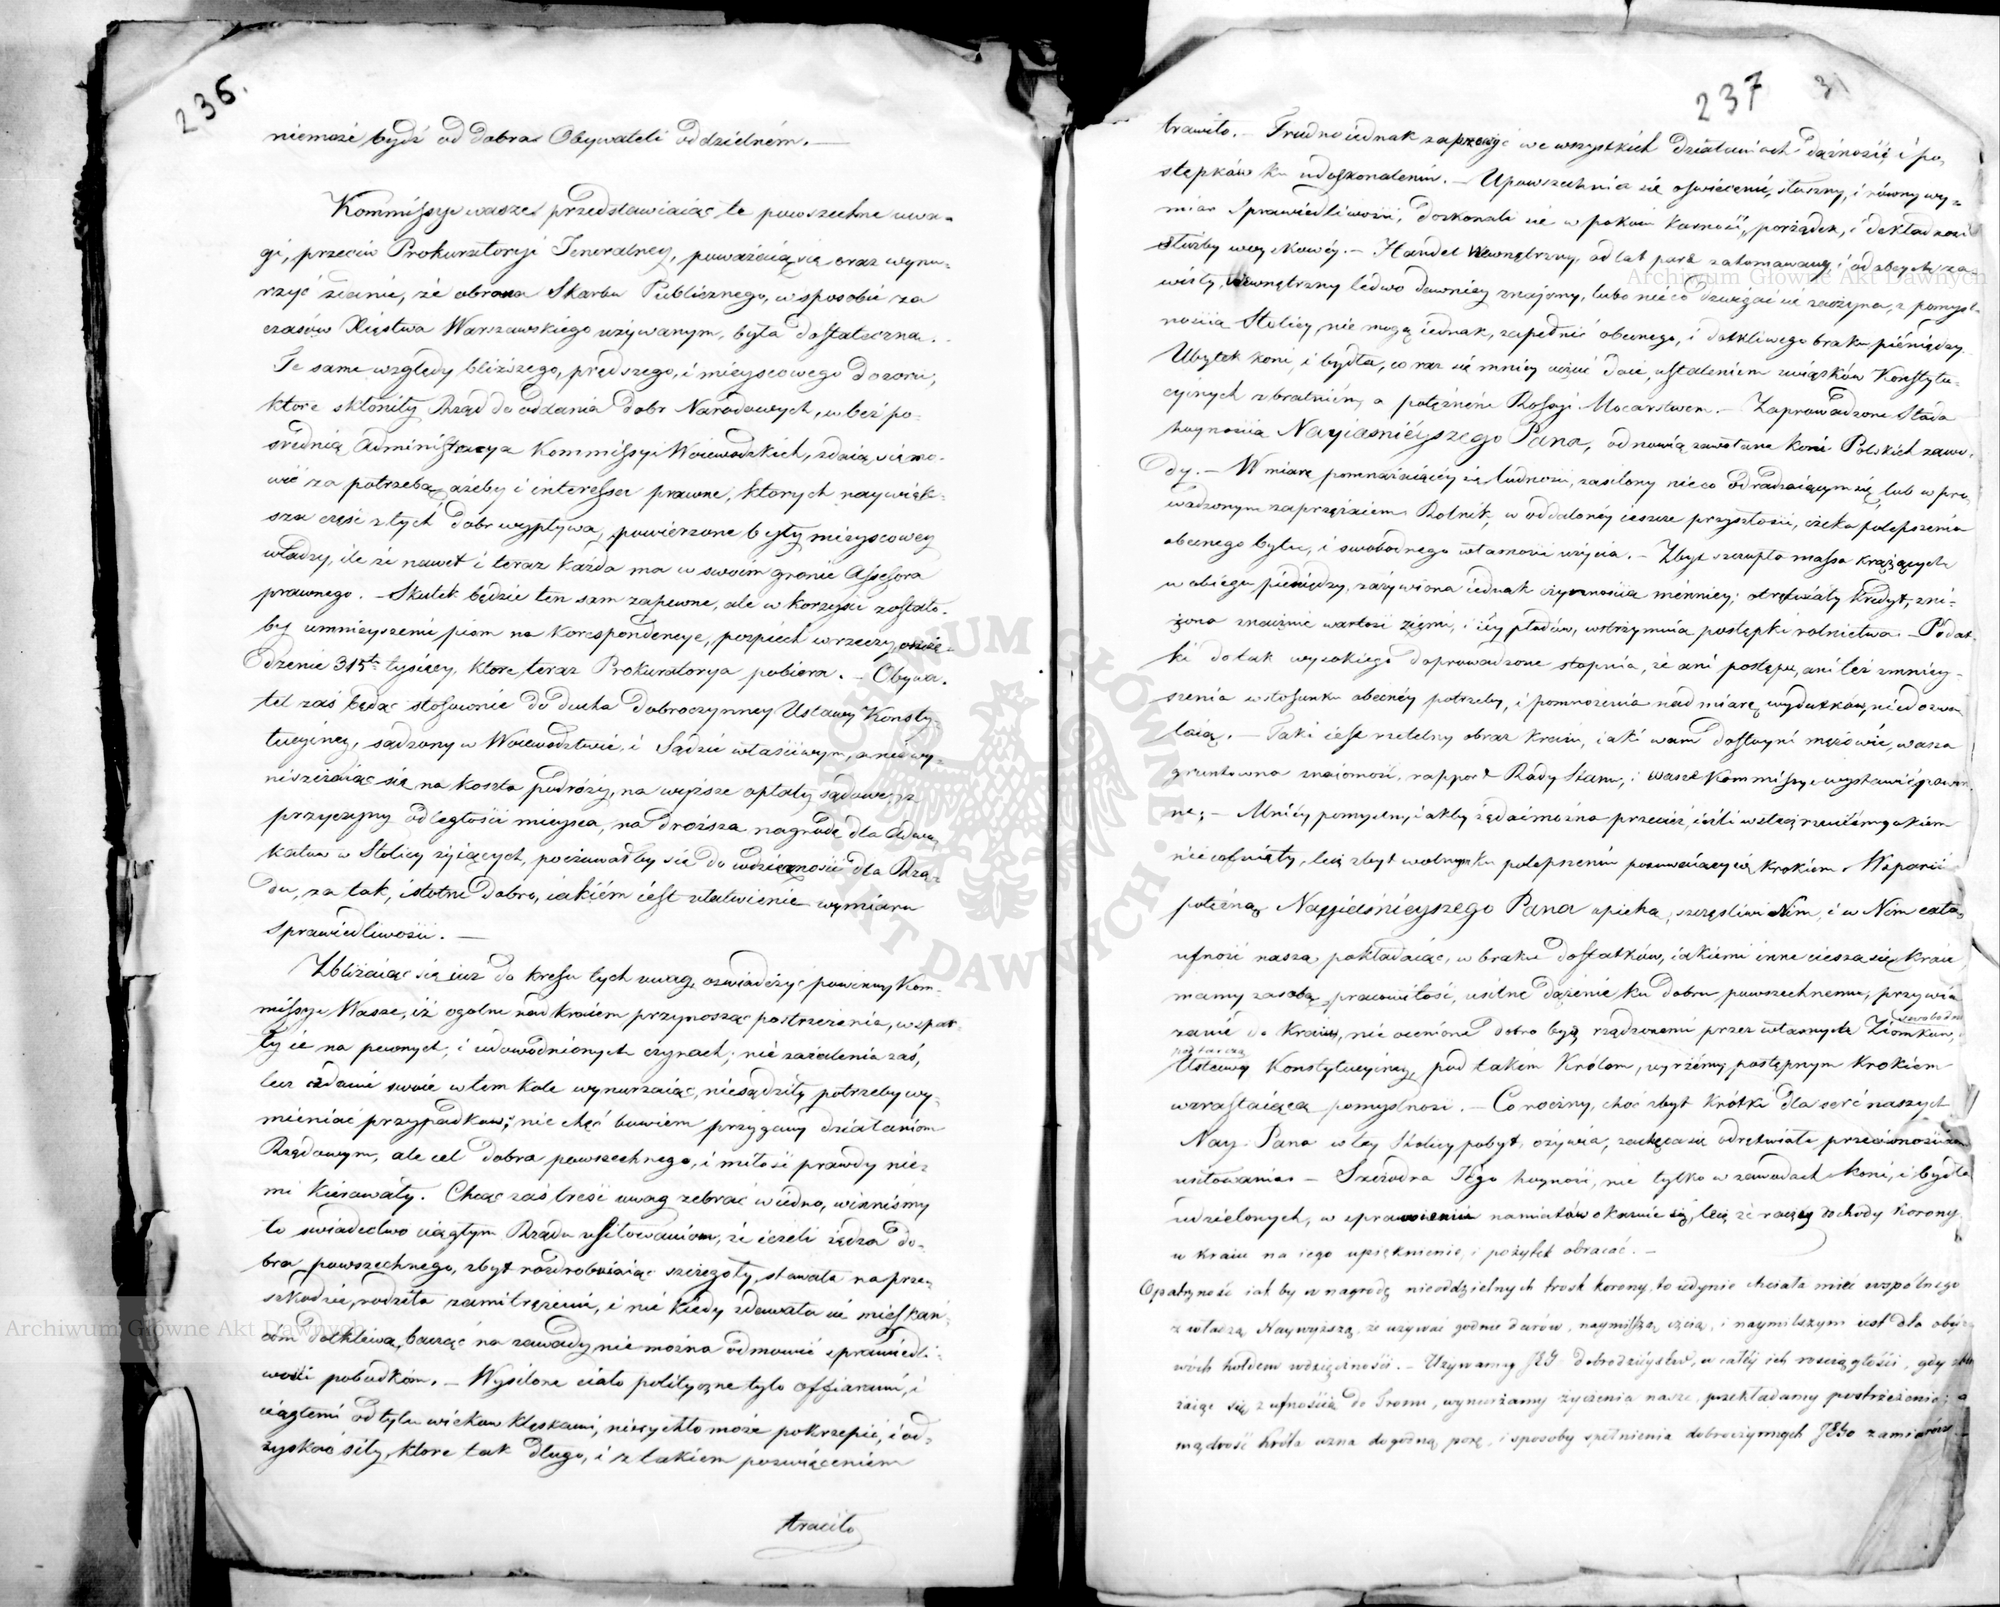 236.
niemoże bydź od dobra Obywateli oddzielném. —
Kommissye wasze przedstawiaiąc te powszechne uwa-
gi, przeciw Prokuratoryi Jeneralney, poważaią się oraz wynu-
rzyć zdanie, że obrona Skarbu Publicznego, w sposobie za
czasów Xięstwa Warszawskiego używanym, była dostateczna.
Te same względy bliższego, prędszego, i mieyscowego dozoru,
które skłoniły Rząd do oddania dobr Narodowych, w bezpo-
średnią Administracyą Kommissyi Woiewodzkich, zdaią się mo-
wić za potrzebą, ażeby i interessa prawne, których naywięk-
sza część z tych dobr wypływa, powierzone były mieyscowey
władzy, ile że nawet i teraz każda ma w swoim gronie Assesora
prawnego. — Skutek będzie ten sam zapewne, ale w korzyści zostało-
by umnieyszenie pism na korespondencye, pospiech w rzeczy, oszczę-
dzenie 315tu tysięcy, które teraz Prokuratorya pobiera. — Obywa-
tel zaś będąc stosownie do ducha dobroczynney Ustawy Konsty-
tucyiney, sądzony w Woiewodztwie, i Sądzie właściwym, a nie wy-
niszczaiąc się na koszta podróży, na wyższe opłaty sądowe, z
przyczyny odległości mieysca, na droższą nagrodę dla Adwo-
katów w Stolicy żyiących, poczuwałby się do wdzięczności dla Rzą-
du, za tak istotne dobro, iakiém iest ułatwienie wymiaru
sprawiedliwości. —
Zbliżaiąc się iuż do kresu tych uwag, oświadczyć powinny Kom-
missye Wasze, iż ogolne nad kraiem przynosząc postrzeżenia, wspar-
ły ie na pewnych, i udowodnionych czynach; nie zażalenia zaś,
lecz zdanie swoie w tem kole wynurzaiąc, niesądziły potrzeby wy-
mieniać przypadków; nie chęć bowiem przygany działaniom
Rządowym, ale cel dobra powszechnego, i miłość prawdy nie-
mi kierowały. Chcąc zaś treść uwag zebrać w iedno, winniśmy
to świadectwo ciągłym Rządu usiłowaniom, że ieżeli żądza do-
bra powszechnego, zbyt rozdrobniaiąc szczegóły, stawała na prze-
szkodzie, rodziła zamitrężenie, i nie kiedy zdawała się mieszkań-
com dotkliwą, bacząc na zawady nie można odmówić sprawiedli-
wości pobudkom. — Wysilone ciało polityczne tylo offiarami, i
ciągłemi od tylu wieków klęskami, nierychło może pokrzepić, i od-
zyskać siły, które tak długo, i z takiem poświęceniem
trwoniło
237 31
trawiło. — Trudno iednak zaprzeczyć we wszystkich działaniach dążność, i po-
stępków ku udoskonaleniu. — Upowszechnia się oświecenie, słuszny, i równy wy-
miar sprawiedliwości, doskonali się w pokoiu karność, porządek, i dokładność
służby woyskowéy. — Handel wewnętrzny, od lat parę zatamowany, i od obcych za-
wisły, wewnętrzny ledwo dawniey znaiomy, lubo nieco dzwigać się zaczyna, z pomyśl-
nością Stolicy, nie mogą iednak, zapełnić obecnego, i dotkliwego braku pieniędzy.
Ubytek koni, i bydła, co raz się mniey uczuć daie, ustaleniem związków Konstytu-
cyinych z bratniém, a potężném Rossyi Mocarstwem. — Zaprowadzone Stada
hoynością Nayiaśnieyszego Pana, odnowią zawołane koni Polskich zawo-
dy. — W miarę pomnażaiącéy się ludności, zasilony nieco odradzaiącym się, lub w pro-
wadzonym zaprzęgiem Rolnik, w oddalonéy ieszcze przyszłości, czeka polepszenia
obecnego bytu, i swobodnego własności użycia. — Zbyt szczupła massa krążących
w obiegu pieniędzy, zażywiona iednak czynnością mennicy; otrętwiały kredyt, zni-
żona znacznie wartość ziemi, i iéy płodów, wstrzymuią postępki rolnictwa. — Podat-
ki do tak wysokiego doprowadzone stopnia, że ani postępu, ani też zmniey-
szenia w stosunku obecnéy potrzeby, i pomnożenia nad miarę wydatków, niedozwa-
laią. — Taki iest rzetelny obraz kraiu, iaki wam dostoyni mężowie, wasza
gruntowna znaiomość, rapport Rady Stanu, i wasze Kommissye wystawić powin-
ne; — Mniéy pomyślny, iakby żądać można przecież, ieśli wstecz rzuciemy okiem
nie cofnięty, lecz zbyt wolnym ku polepszeniu posuwaiący się krokiem. Wsparci
potężną Nayiaśnieyszego Pana opieką, szczęśliwi Nim, i w Nim całą
ufność naszą pokładaiąc, w braku dostatków, iakiemi inne cieszą się kraie,
mamy zasobą pracowitość, usilne dążenie ku dobru powszechnemu, przywią-
zanie do kraiu, nie ocenione dobro być rządzonemi przez własnych Ziomków, swobodną
pod tarczą
Ustawą Konstytucyiney, pod takim Królem, uyrzémy postępnym krokiem
wzrastaiącą pomyślność. — Coroczny, choć zbyt krótki dla serc naszych
Nay: Pana w tey Stolicy pobyt, ożywia, zachęca odrętwiałe przeciwnościom
usiłowania. — Szczodra Jego hoyność, nie tylko w zawodach koni, i bydła
udzielonych, w sprawieniu namiotów okazuie się, lecz że raczy dochody korony
w kraiu na iego upiększenie, i pożytek obracać. —
Opatrzność iak by w nagrodę nieoddzielnych trosk korony, to iedynie chciała mieć wspólnego
z władzą Naywyższą, że używać godnie darów, naymilszą czcią, i naymilszym iest dla oby-
wóch hołdem wdzięczności. — Używamy JEGO dobrodzieystw, w całéy ich rosciągłości, gdy zbli-
żaiąc się z ufnością do Tronu, wynurzamy życzenia nasze, przekładamy postrzeżenia; a
mądrość króla uzna dogodną porę, i sposoby spełnienia dobroczynnych JEGO zamiarów. —